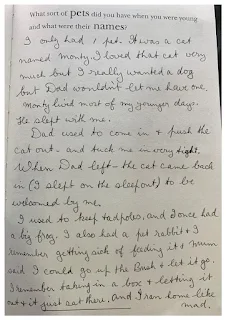 What sort of pets did you have when you were young
and what were their names?
I only had 1 pet. It was a cat
named Monty. I loved that cat very
much but I really wanted a dog
but Dad wouldn't let me have one.
Monty lived most of my younger days.
He slept with me.
Dad used to come in & push the
cat out - and tuck me in very tight.
When Dad left - the cat came back
in (I slept on the sleepout) to be
welcomed by me.
I used to keep tadpoles, and I once had
a big frog. I also had a pet rabbit & I
remember getting sick of feeding it & Mum
said I could go up the Bush & let it go.
I remember taking in a box & letting it
out & it just sat there, and I ran home like
mad.